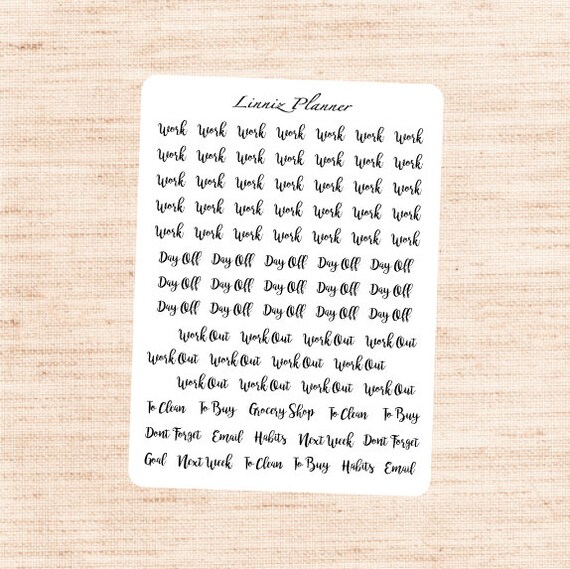 Linniz Planner
Work Work Work Work Work Work Work
Work Work Work Work Work Work Work
Work Work Work Work Work Work Work
Work Work Work Work Work Work Work
Work Work Work Work Work Work Work
Day Off Day Off Day Off Day Off Day Off
Day Off Day Off Day Off Day Off Day Off
Day Off Day Off Day Off Day Off Day Off
Work Out Work Out Work Out Work Out
Work Out Work Out Work Out Work Out
Work Out Work Out Work Out Work Out
To Clean To Buy Grocery Shop To Clean To Buy
Dont Forget Email Habits Next Week Dont Forget
Goal Next Week To Clean To Buy Habits Email